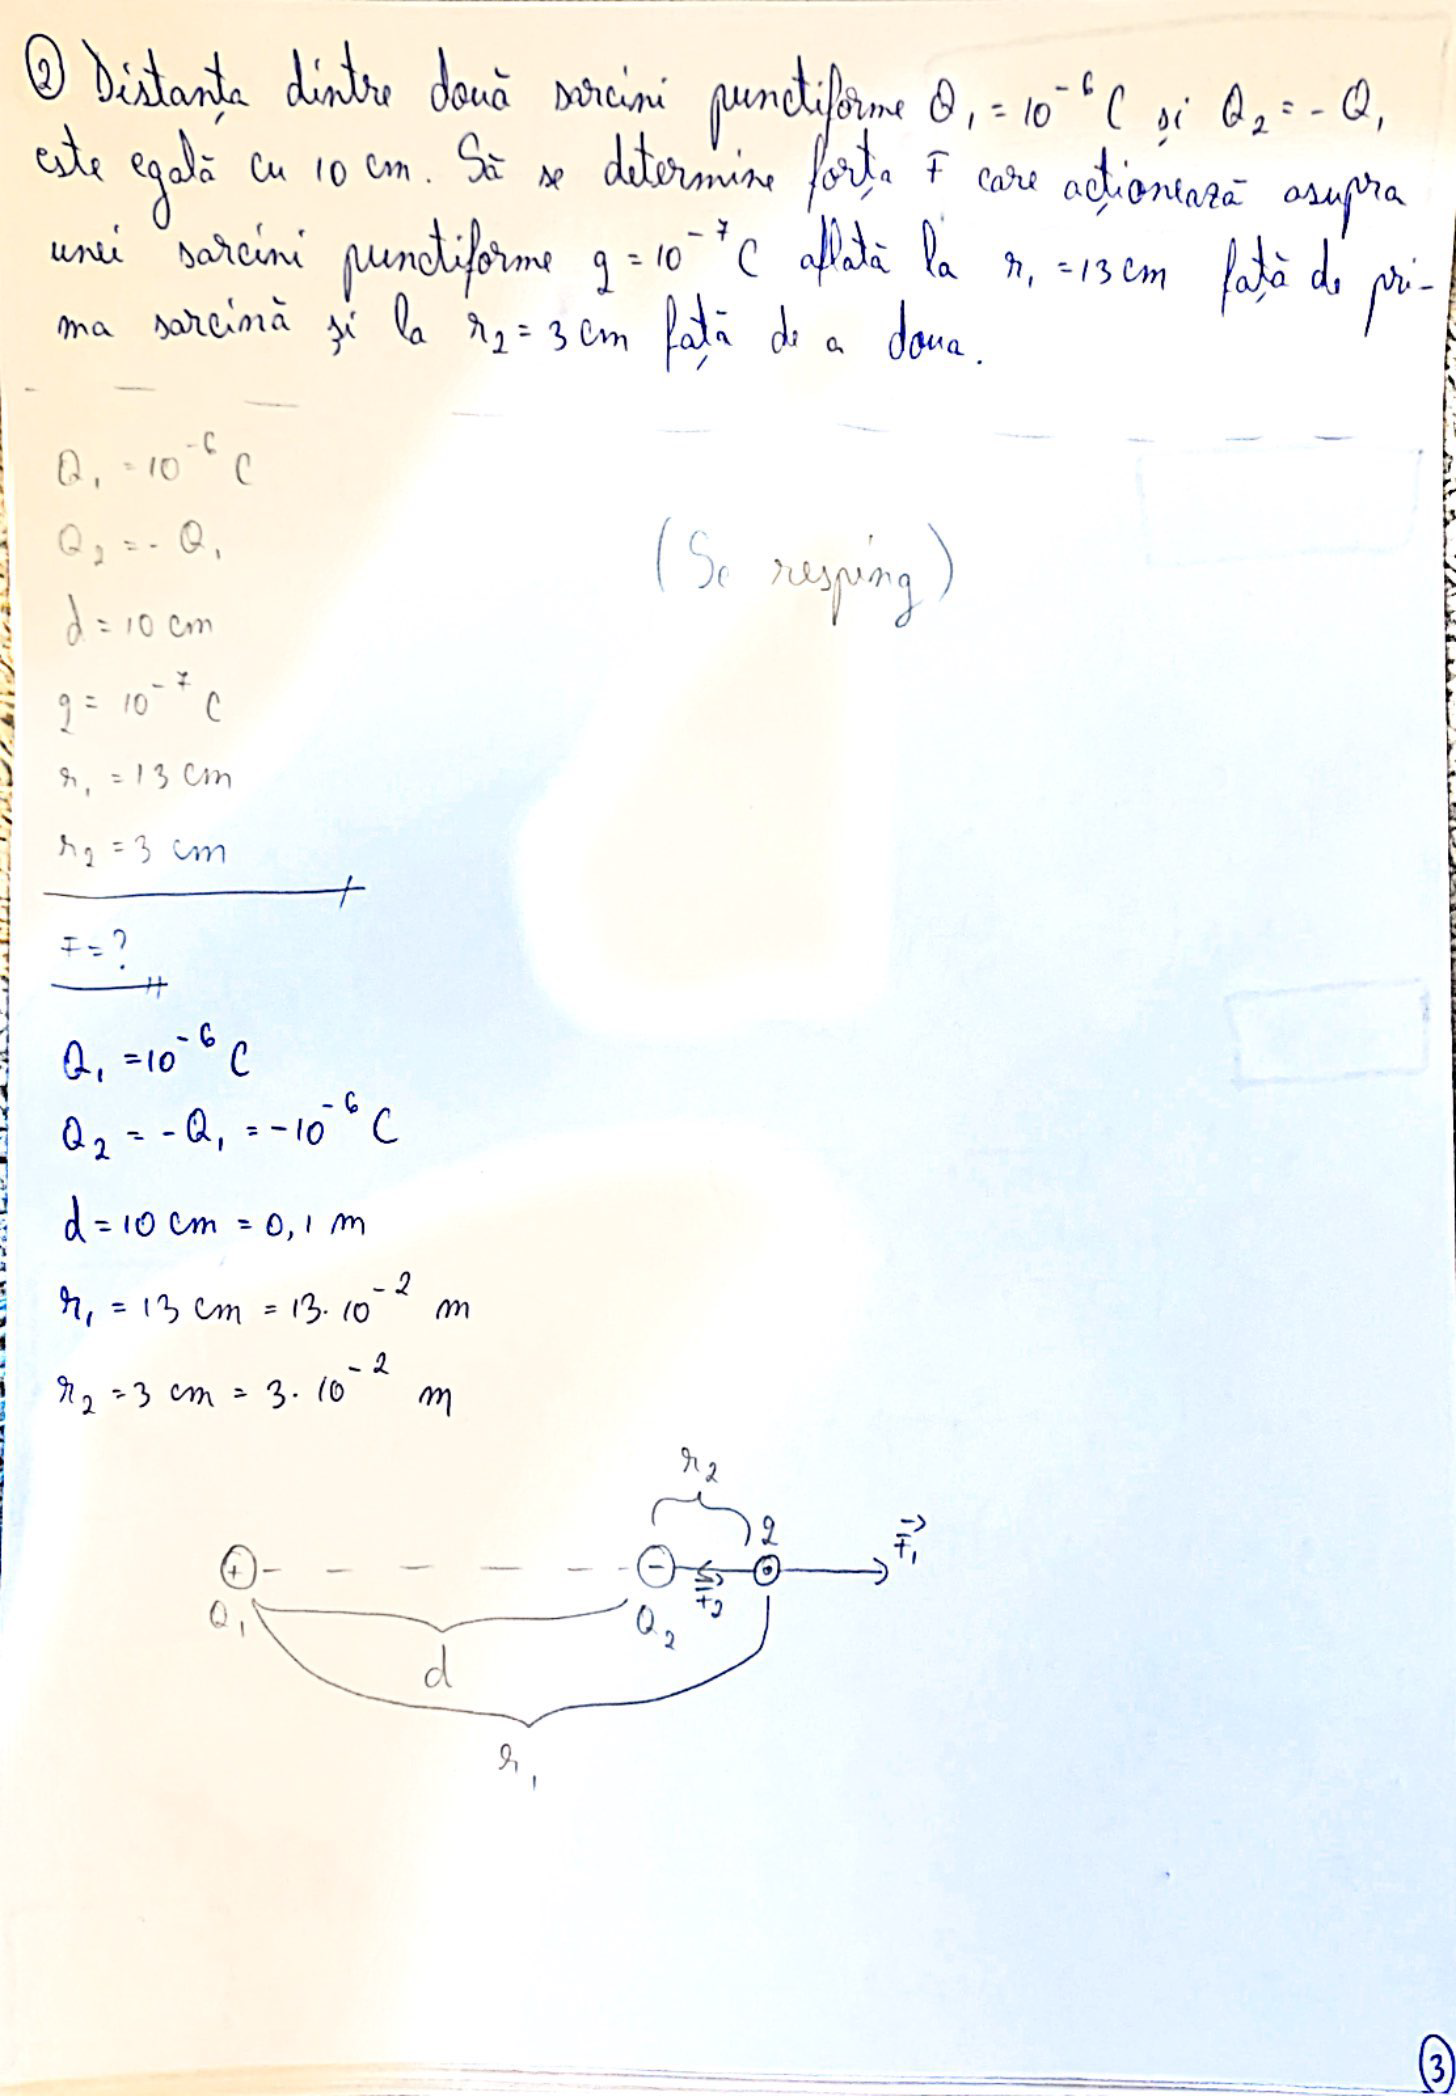 ② Distanța dintre două sarcini punctiforme Q₁ = 10⁻⁶ C și Q₂ = - Q₁
este egală cu 10 cm. Să se determine forța F care acționează asupra
unei sarcini punctiforme q = 10⁻⁷ C aflată la r₁ = 13 cm față de pri-
ma sarcină și la r₂ = 3 cm față de a doua.
Q₁ = 10⁻⁶ C
Q₂ = - Q₁
(Se resping)
d = 10 cm
q = 10⁻⁷ C
r₁ = 13 cm
r₂ = 3 cm
F = ?
Q₁ = 10⁻⁶ C
Q₂ = - Q₁ = - 10⁻⁶ C
d = 10 cm = 0,1 m
r₁ = 13 cm = 13 · 10⁻² m
r₂ = 3 cm = 3 · 10⁻² m
r₂
q F⃗₁
+ -
Q₁ Q₂ F⃗₂
d
r₁
③